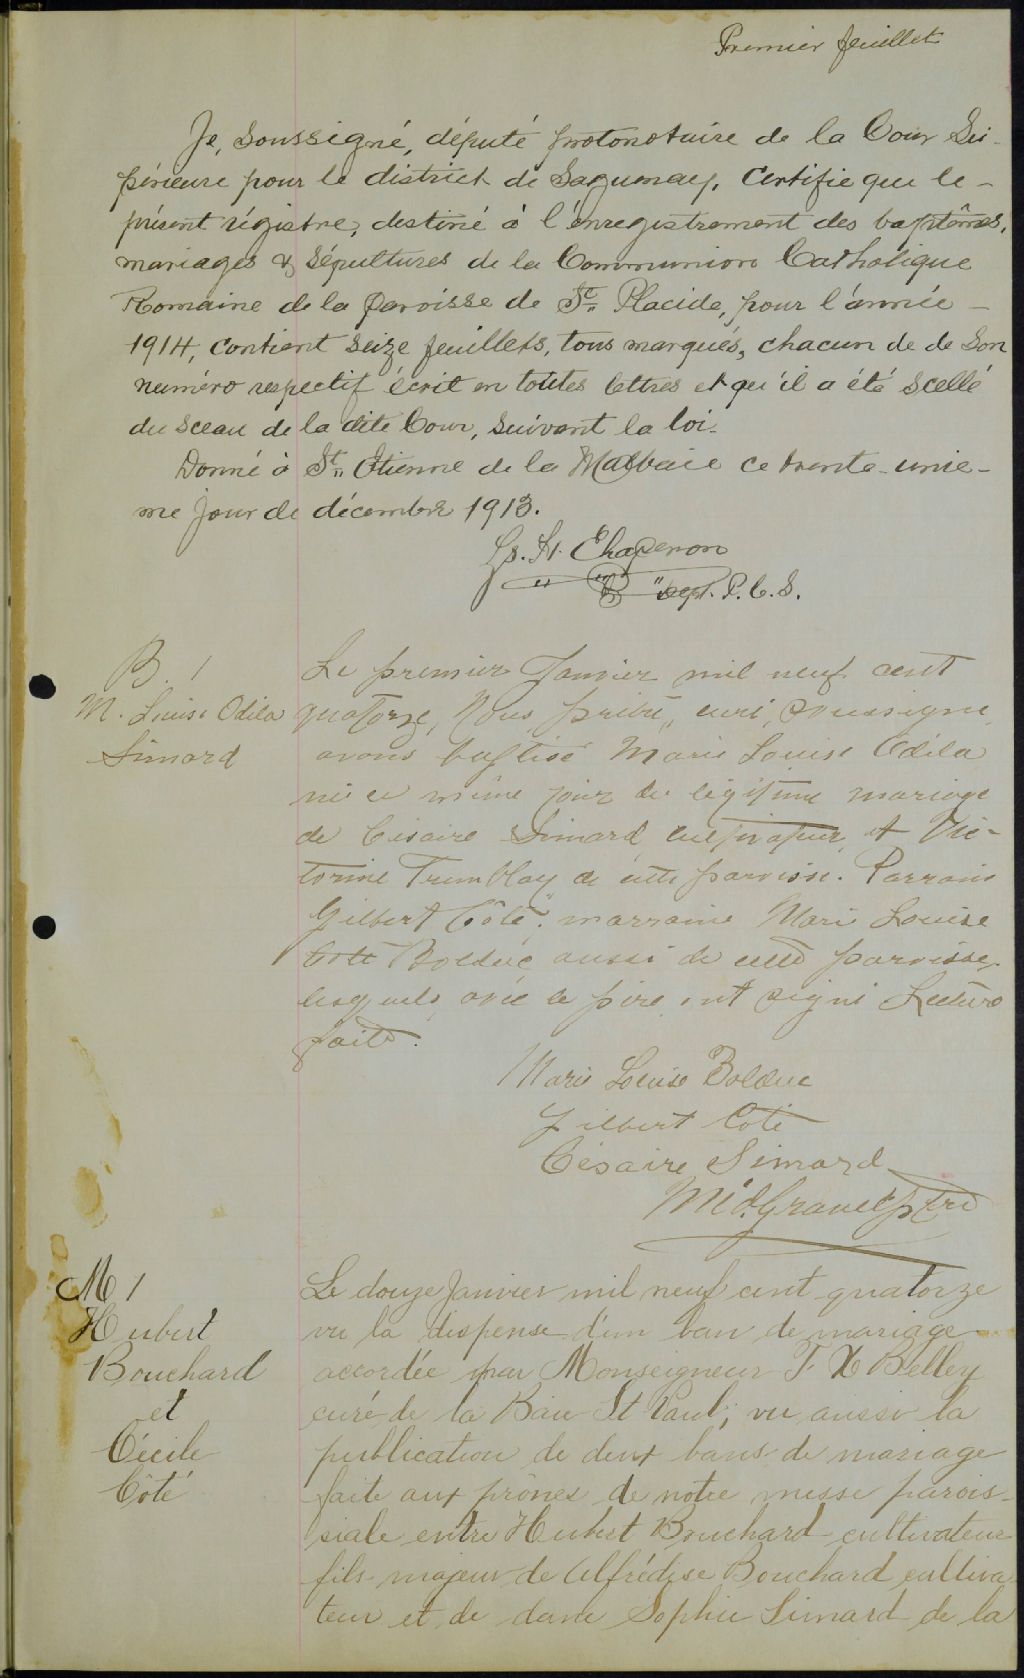 Premier feuillet
Je, soussigné, député protonotaire de la Cour Su-
périeure pour le district de Saguenay, certifie que le
présent régistre, destiné à l'enregistrement des baptêmes,
mariages & sépultures de la Communion Catholique
Romaine de la paroisse de St. Placide, pour l'année
1914, contient seize feuillets, tous marqués, chacun de de son
numéro respectif écrit en toutes lettres et qu'il a été scellé
du sceau de la dite Cour, suivant la loi.
Donné à St. Etienne de la Malbaie ce trente-uniè-
me jour de décembre 1913.
Chaperon
Dept. P. C. S.
B. 1
M. Louise Odila
Simard
Le premier Janvier mil neuf cent
quatorze, Nous, prêtre, curé, soussigné,
avons baptisé Marie Louise Odila
née ce même jour du légitime mariage
de Césaire Simard, cultivateur, et Vic-
torine Tremblay de cette paroisse. Parrain
Gilbert Côté, marraine Marie Louise
Coté Bolduc aussi de cette paroisse,
lesquels, avec le père, ont signé Lecture
faite.
Marie Louise Bolduc
Gilbert Coté
Césaire Simard
Gravel ptre
M 1
Hubert
Bouchard
et
Cécile
Côté
Le douze Janvier mil neuf cent quatorze
vu la dispense d'un ban de mariage
accordée par Monseigneur F X Belley
curé de la Baie St Paul; vu aussi la
publication de deux bans de mariage
faite aux prônes de notre messe parois-
siale entre Hubert Bouchard cultivateur
fils majeur de Alfrédise Bouchard cultiva-
teur et de dame Sophie Simard de la